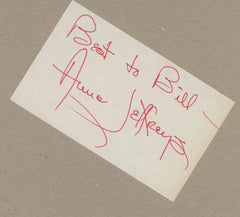 Best to Bill —
Anne
Jeffreys